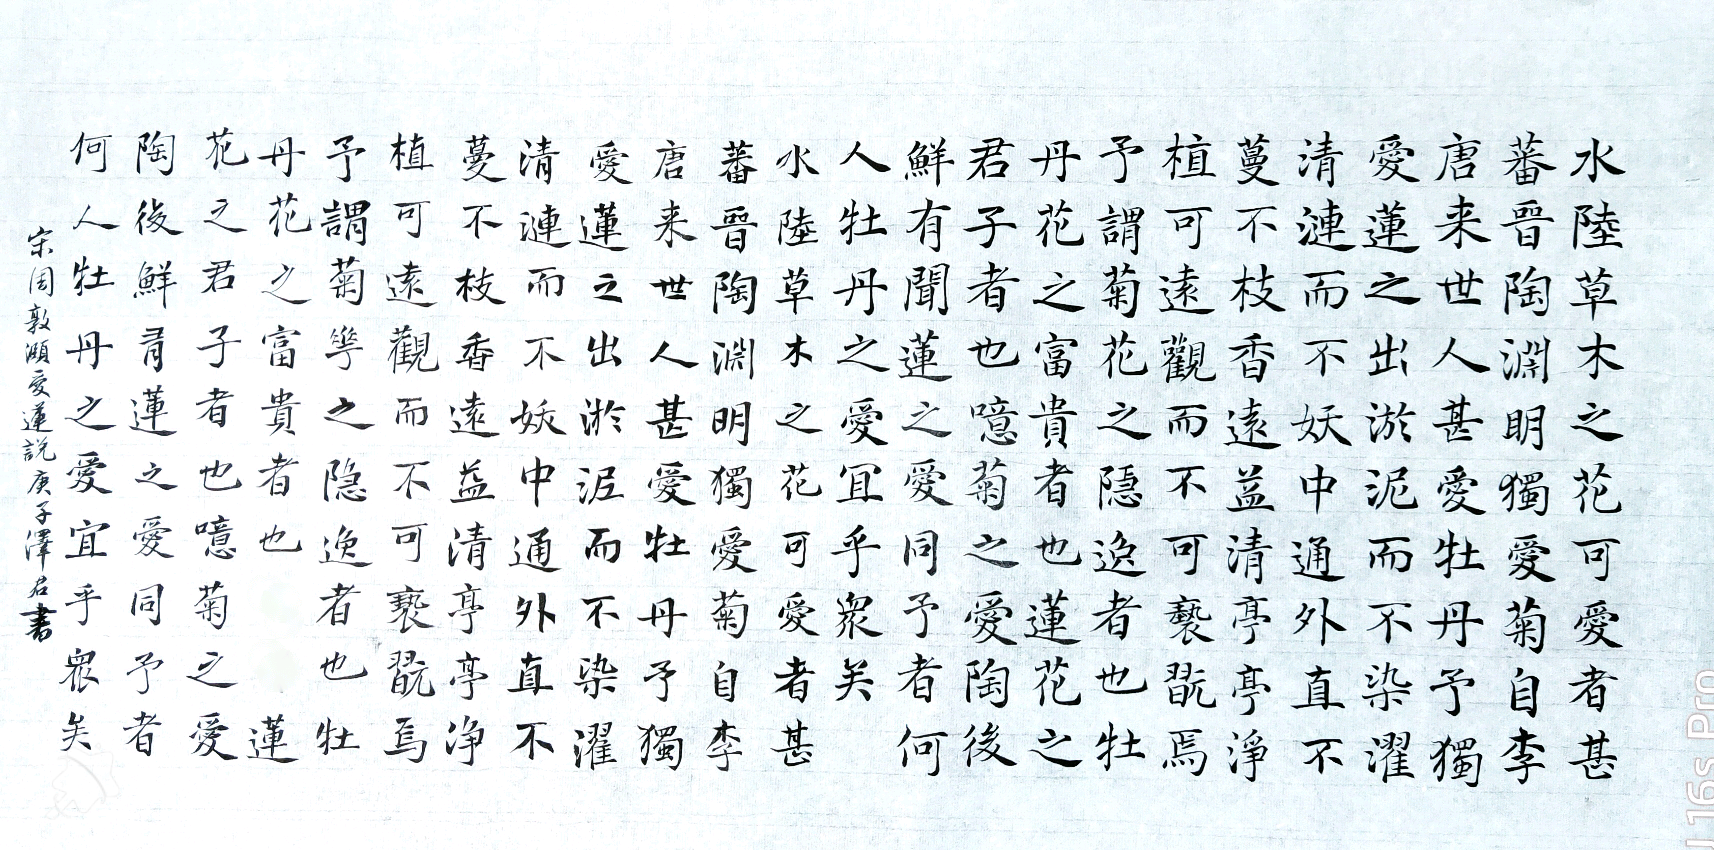 水陸草木之花可愛者甚
蕃晉陶淵明獨愛菊自李
唐来世人甚愛牡丹予獨
愛蓮之出淤泥而不染濯
清漣而不妖中通外直不
蔓不枝香遠益清亭亭淨
植可遠觀而不可褻翫焉
予謂菊花之隱逸者也牡
丹花之富貴者也蓮花之
君子者也噫菊之愛陶後
鮮有聞蓮之愛同予者何
人牡丹之愛宜乎眾矣
水陸草木之花可愛者甚
蕃晉陶淵明獨愛菊自李
唐来世人甚愛牡丹予獨
愛蓮之出淤泥而不染濯
清漣而不妖中通外直不
蔓不枝香遠益清亭亭净
植可遠觀而不可褻翫焉
予謂菊華之隐逸者也牡
丹花之富貴者也蓮
花之君子者也噫菊之愛
陶後鮮有蓮之愛同予者
何人牡丹之愛宜乎眾矣
宋周敦灝愛蓮説庚子澤君書
16s Pro